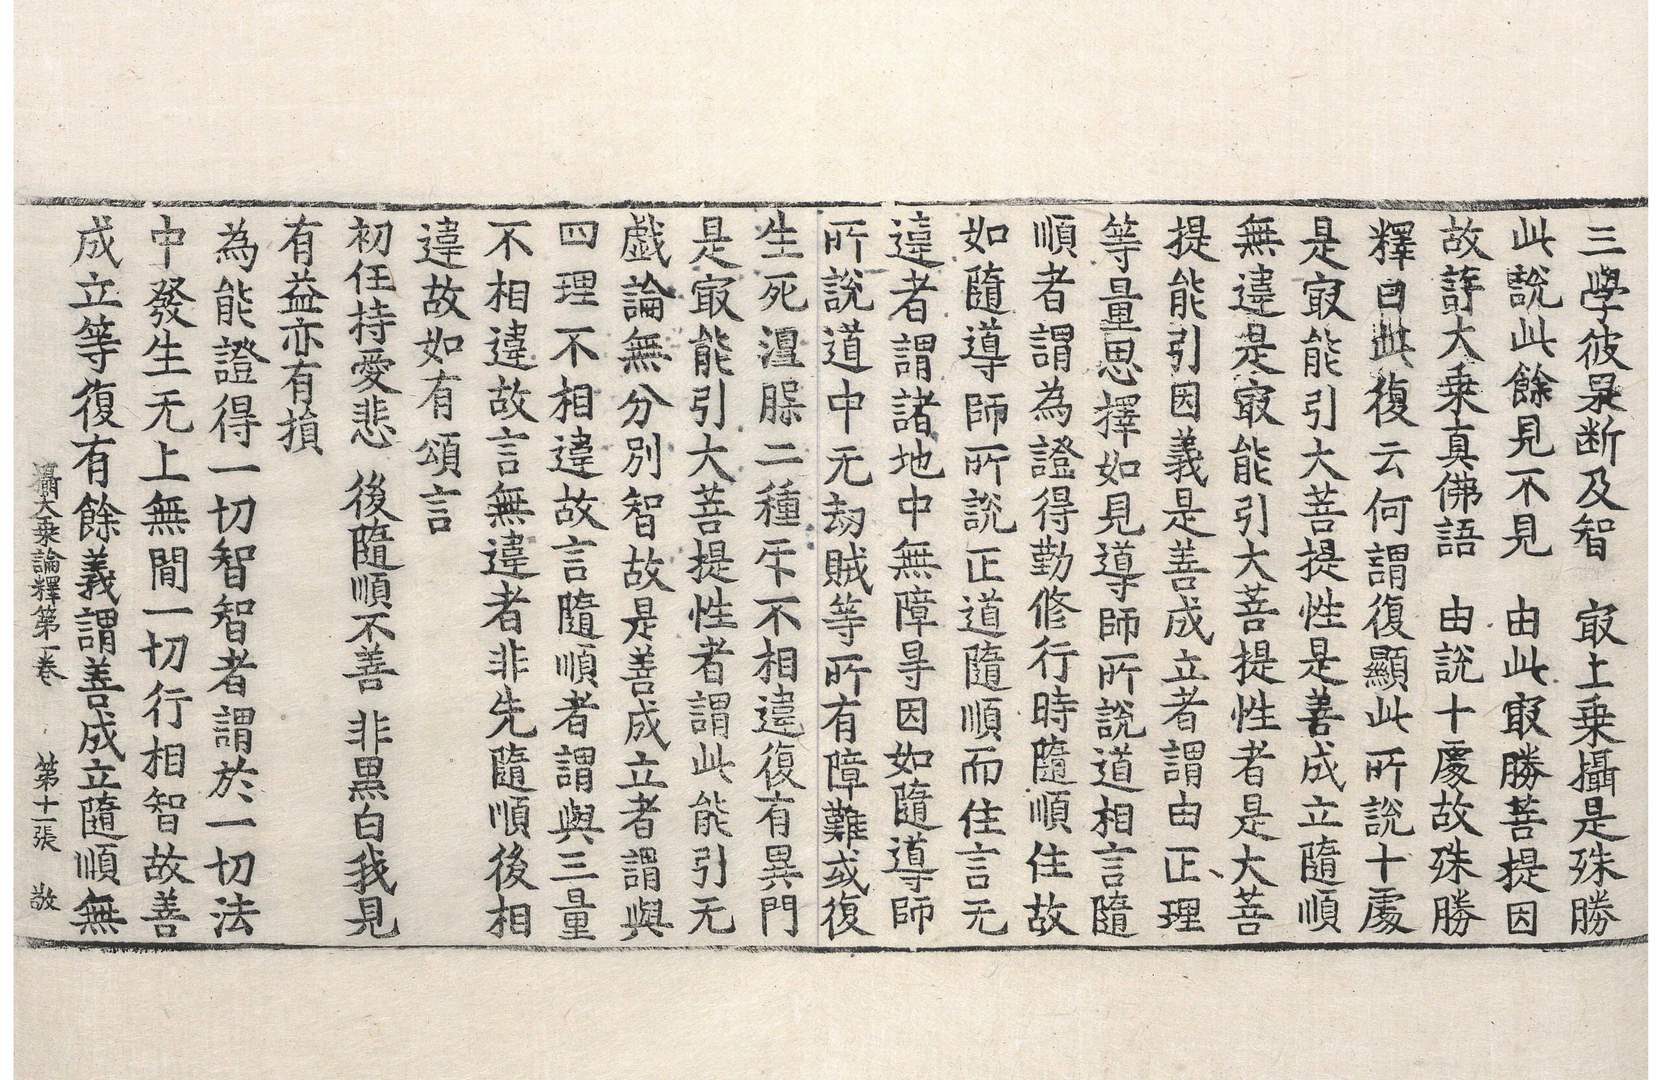 三學彼果断及智　㝡上乗攝是殊勝
此說此餘見不見　由此㝡勝菩提因
故許大乗真佛語　由說十處故殊勝
釋曰此復云何謂復顯此所說十處
是㝡能引大菩提性是善成立隨順
無違是㝡能引大菩提性者是大菩
提能引因義是善成立者謂由正理
等量思擇如見導師所說道相言隨
順者謂為證得勤修行時隨順住故
如隨導師所說正道隨順而住言无
違者謂諸地中無障㝵因如隨導師
所說道中无劫賊等所有障難或復
生死涅槃二種斥不相違復有異門
是㝡能引大菩提性者謂此能引无
戯論無分別智故是善成立者謂與
四理不相違故言隨順者謂與三量
不相違故言無違者非先隨順後相
違故如有頌言
初任持愛悲　後隨順不善　非黒白我見
有益亦有損
為能證得一切智智者謂於一切法
中發生无上無間一切行相智故善
成立等復有餘義謂善成立隨順無
攝大乗論釋第一卷　第十一張　敬